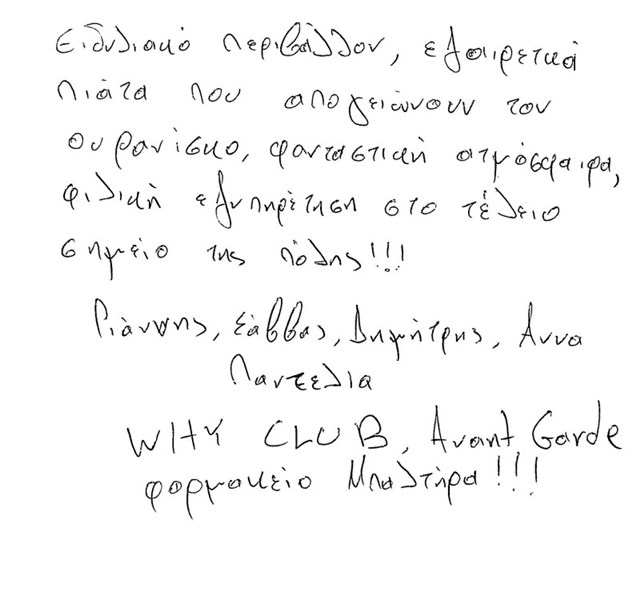 Ειδυλιακό περιβάλλον, εξαιρετικά
πιάτα που απογειώνουν τον
ουρανίσκο, φανταστική ατμόσφαιρα,
φιλική εξυπηρέτηση στο τέλειο
σημείο της πόλης!!!
Γιάννης, Σάββας, Δημήτρης, Άννα
Παντελια
WHY CLUB, Avant Garde
φαρμακείο Μπαλτήρα!!!